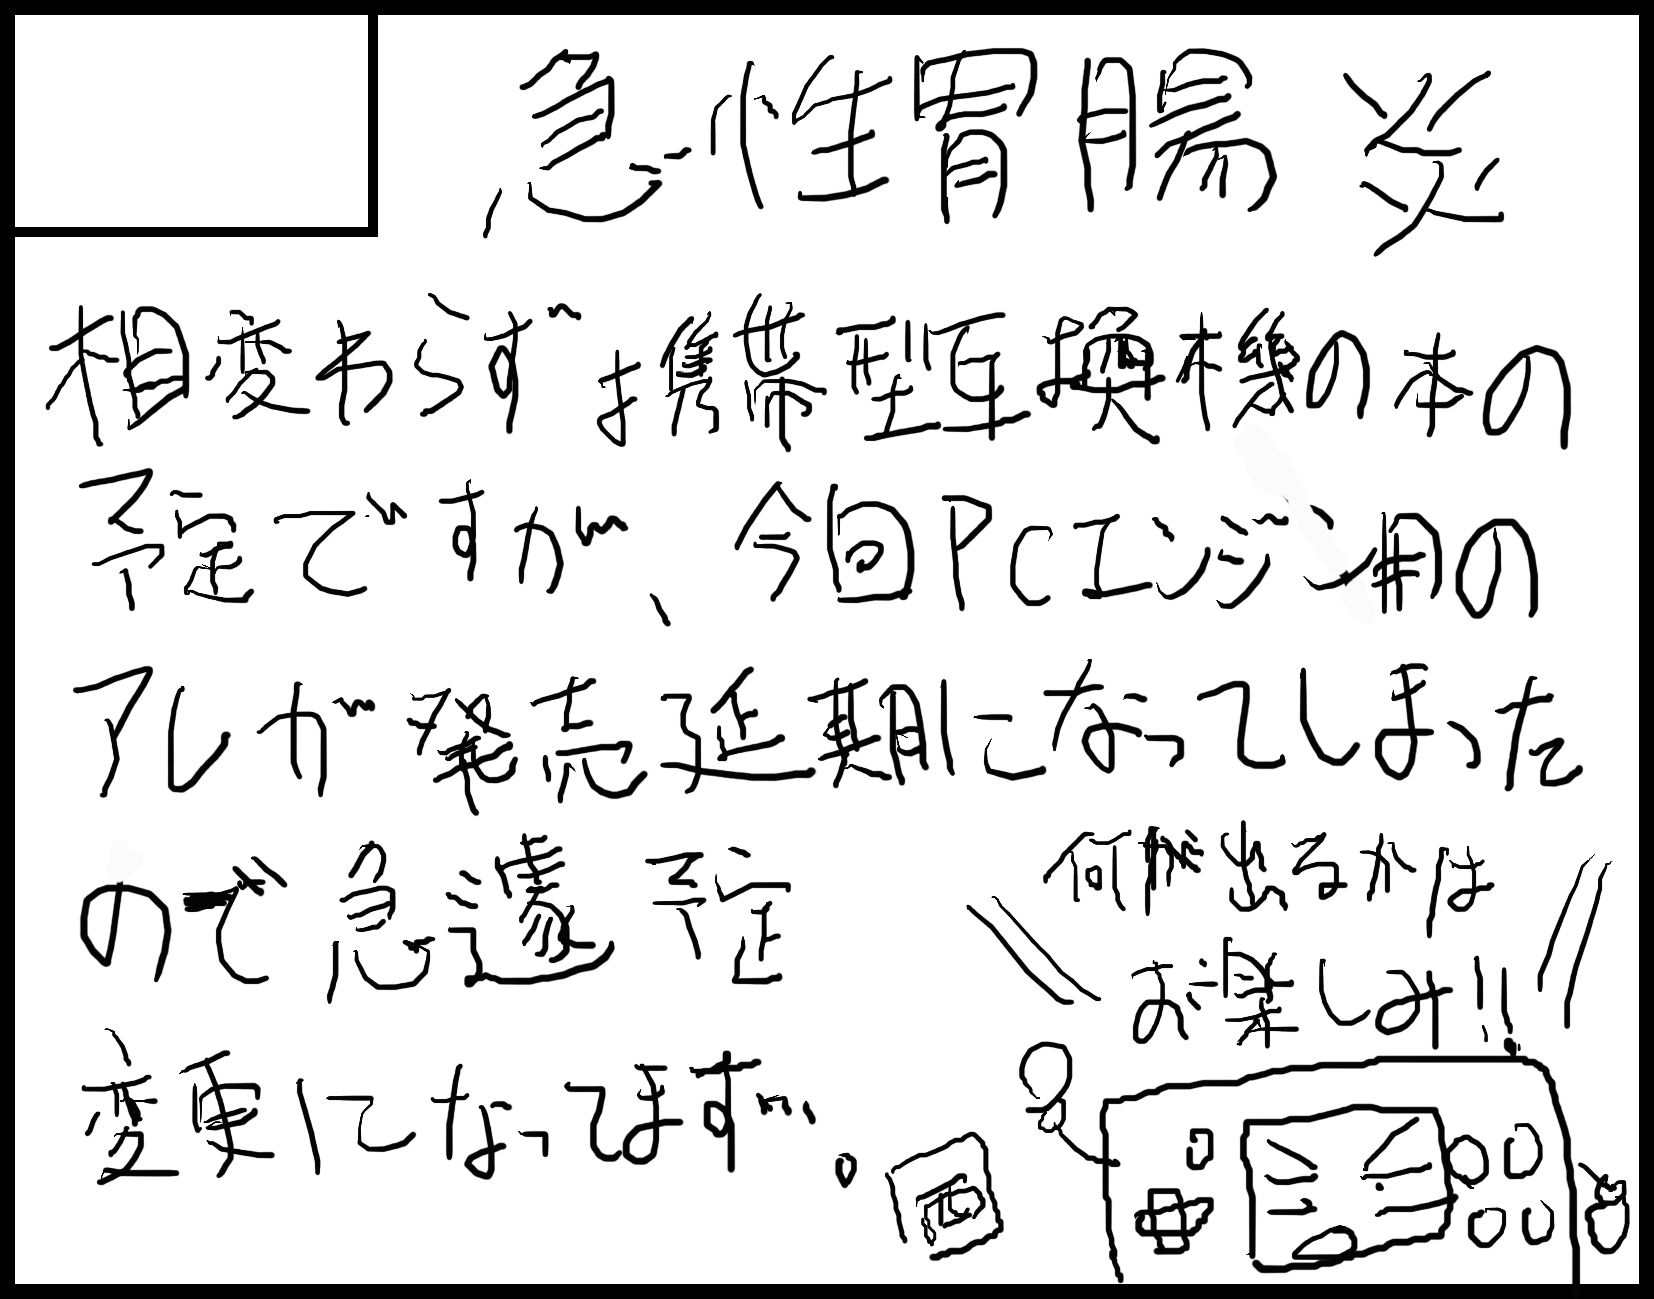 急性胃腸炎
相変わらず携帯型互換機の本の
予定ですが、今回PCエンジン用の
アレが発売延期になってしまった
ので急遽予定
変更になってます。
何が出るかは
お楽しみ!!